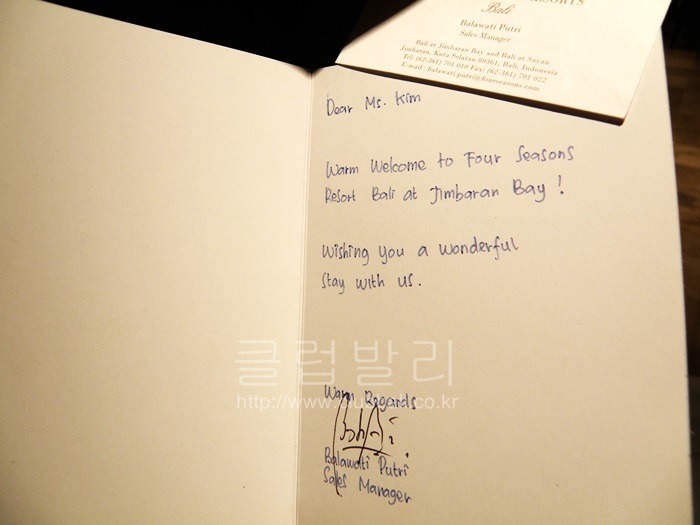 RESORTS
Bali
Balawati Putri
Sales Manager
Bali at Jimbaran Bay and Bali at Sayan
Jimbaran, Kuta Selatan 80361, Bali, Indonesia
Tel: (62-361) 701 010 Fax: (62-361) 701 022
E-mail: balawati.putri@fourseasons.com
Dear Ms. Kim
Warm Welcome to Four Seasons
Resort Bali at Jimbaran Bay !
Wishing you a wonderful
Stay with us.
클럽발리
Warm Regards
Balawati Putri
Sales Manager